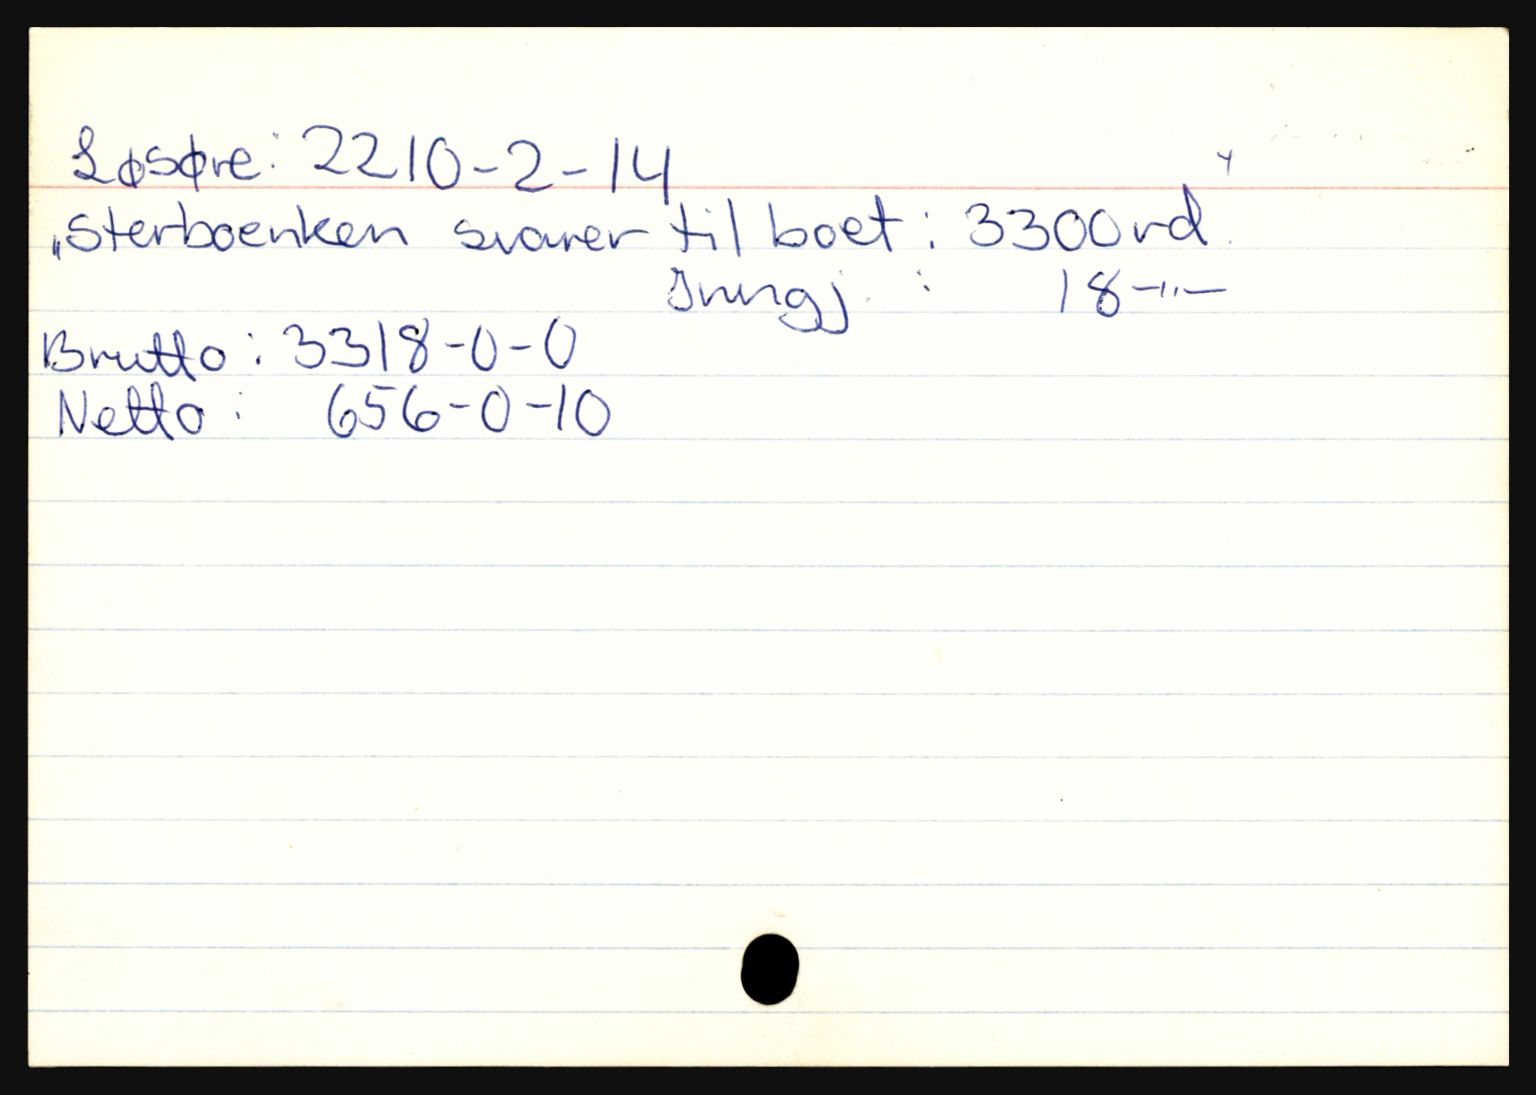 Løsøre: 2210-2-14
"Sterboenken svarer til boet: 3300rd.
Inngj. : 18-"-
Brutto: 3318-0-0
Netto: 656-0-10